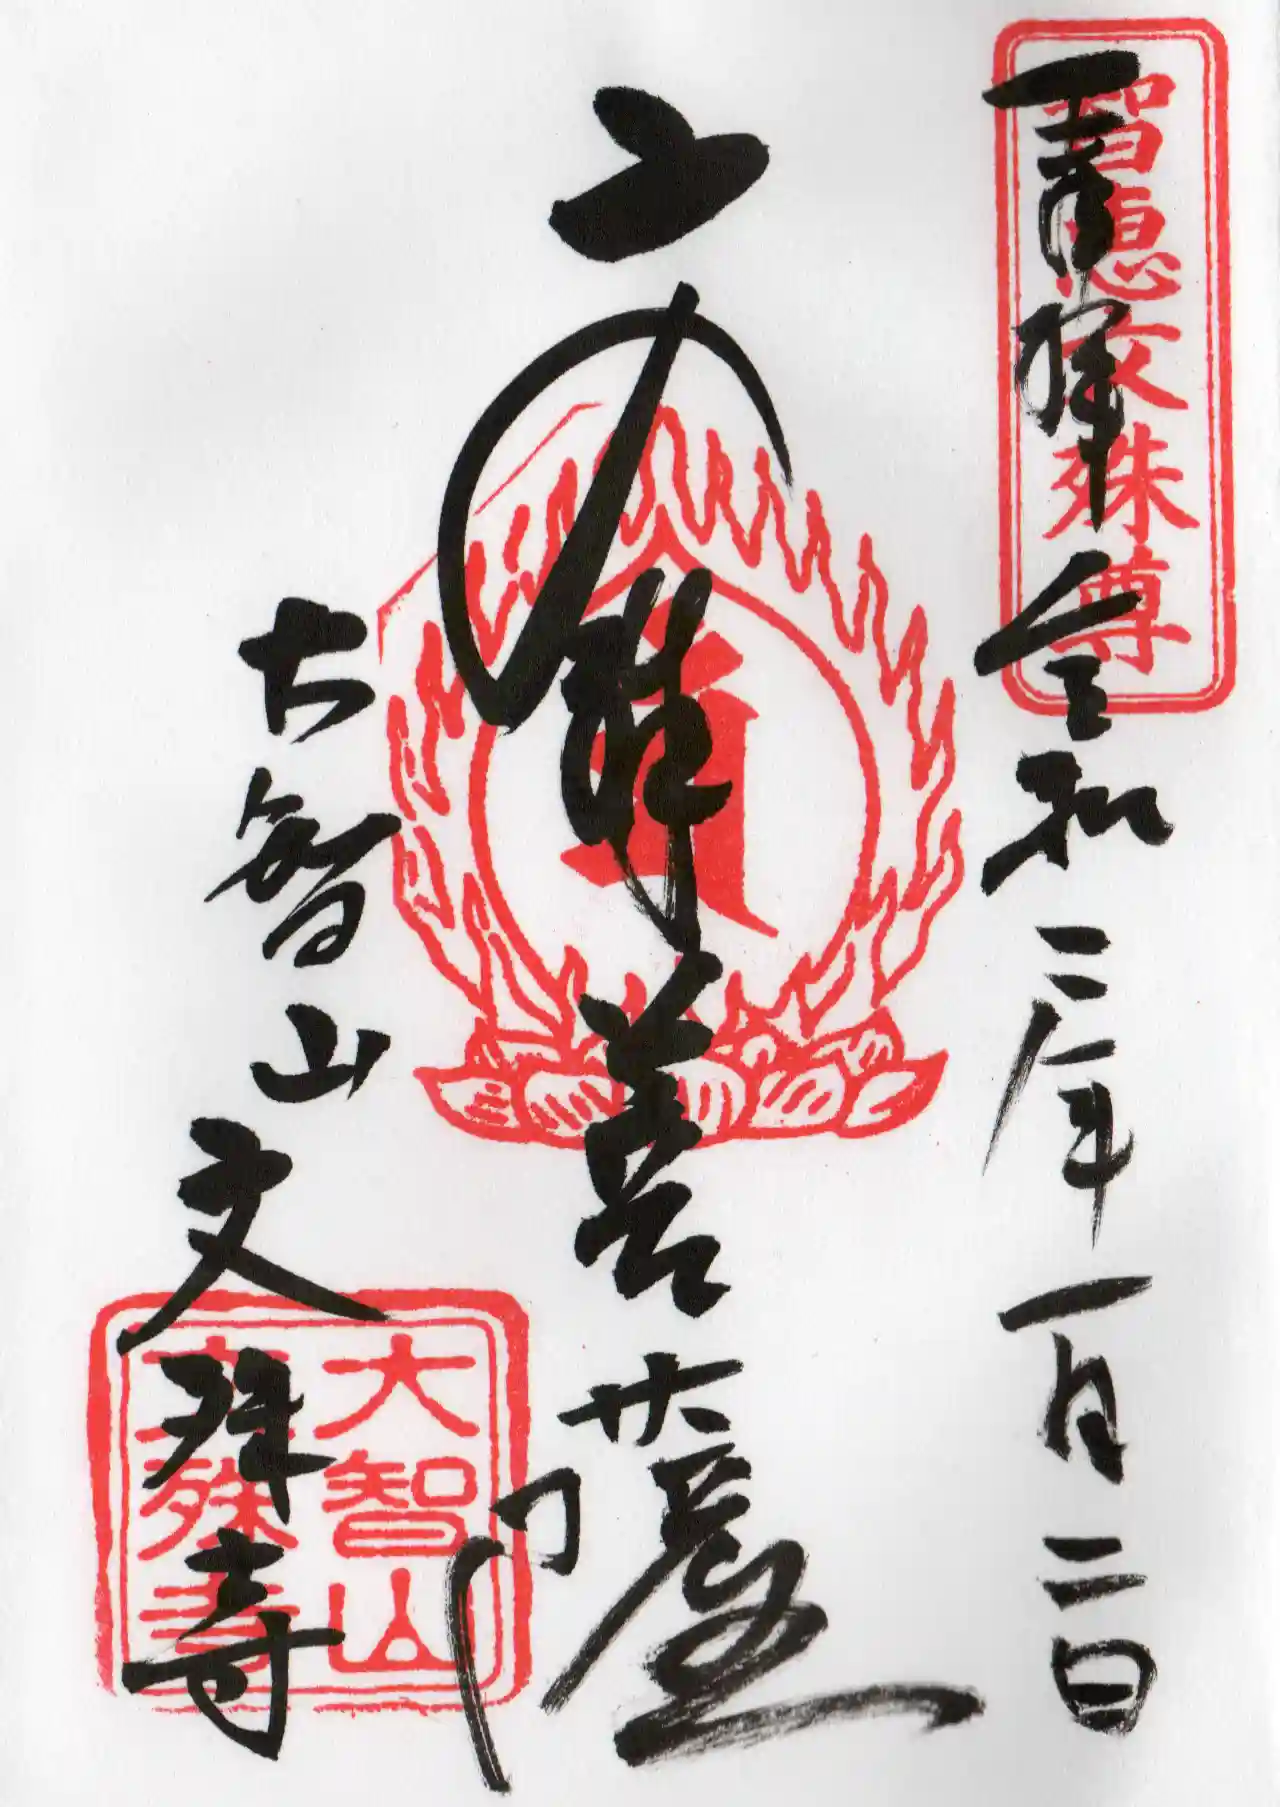 智恵文殊尊
奉拝 令和二年一月二日
文殊菩薩
大智山 文殊寺
大智山
文殊寺